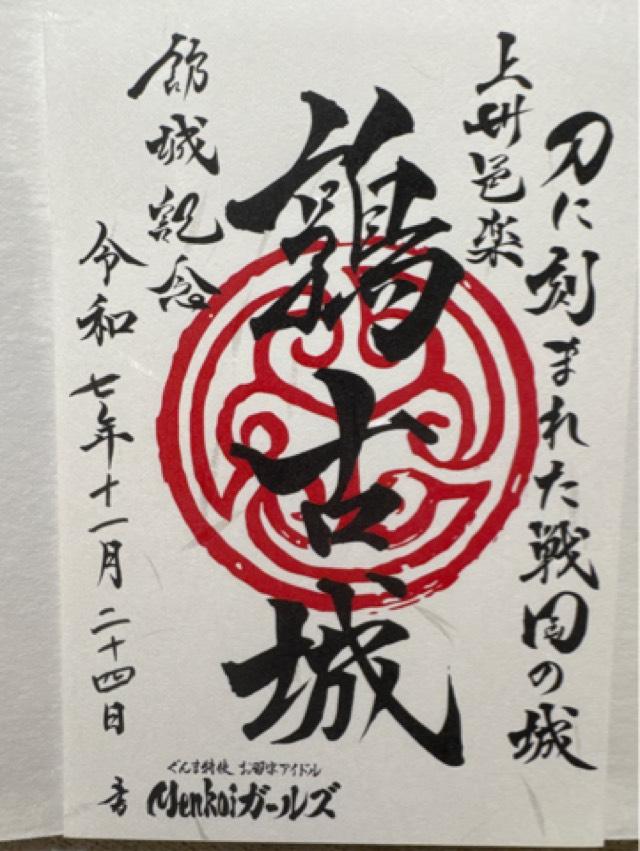 刀に刻まれた戦国の城
上州邑楽
鶉古城
城記念
令和七年十一月二十四日
ぐんま特使 お習字アイドル
Menkoiガールズ